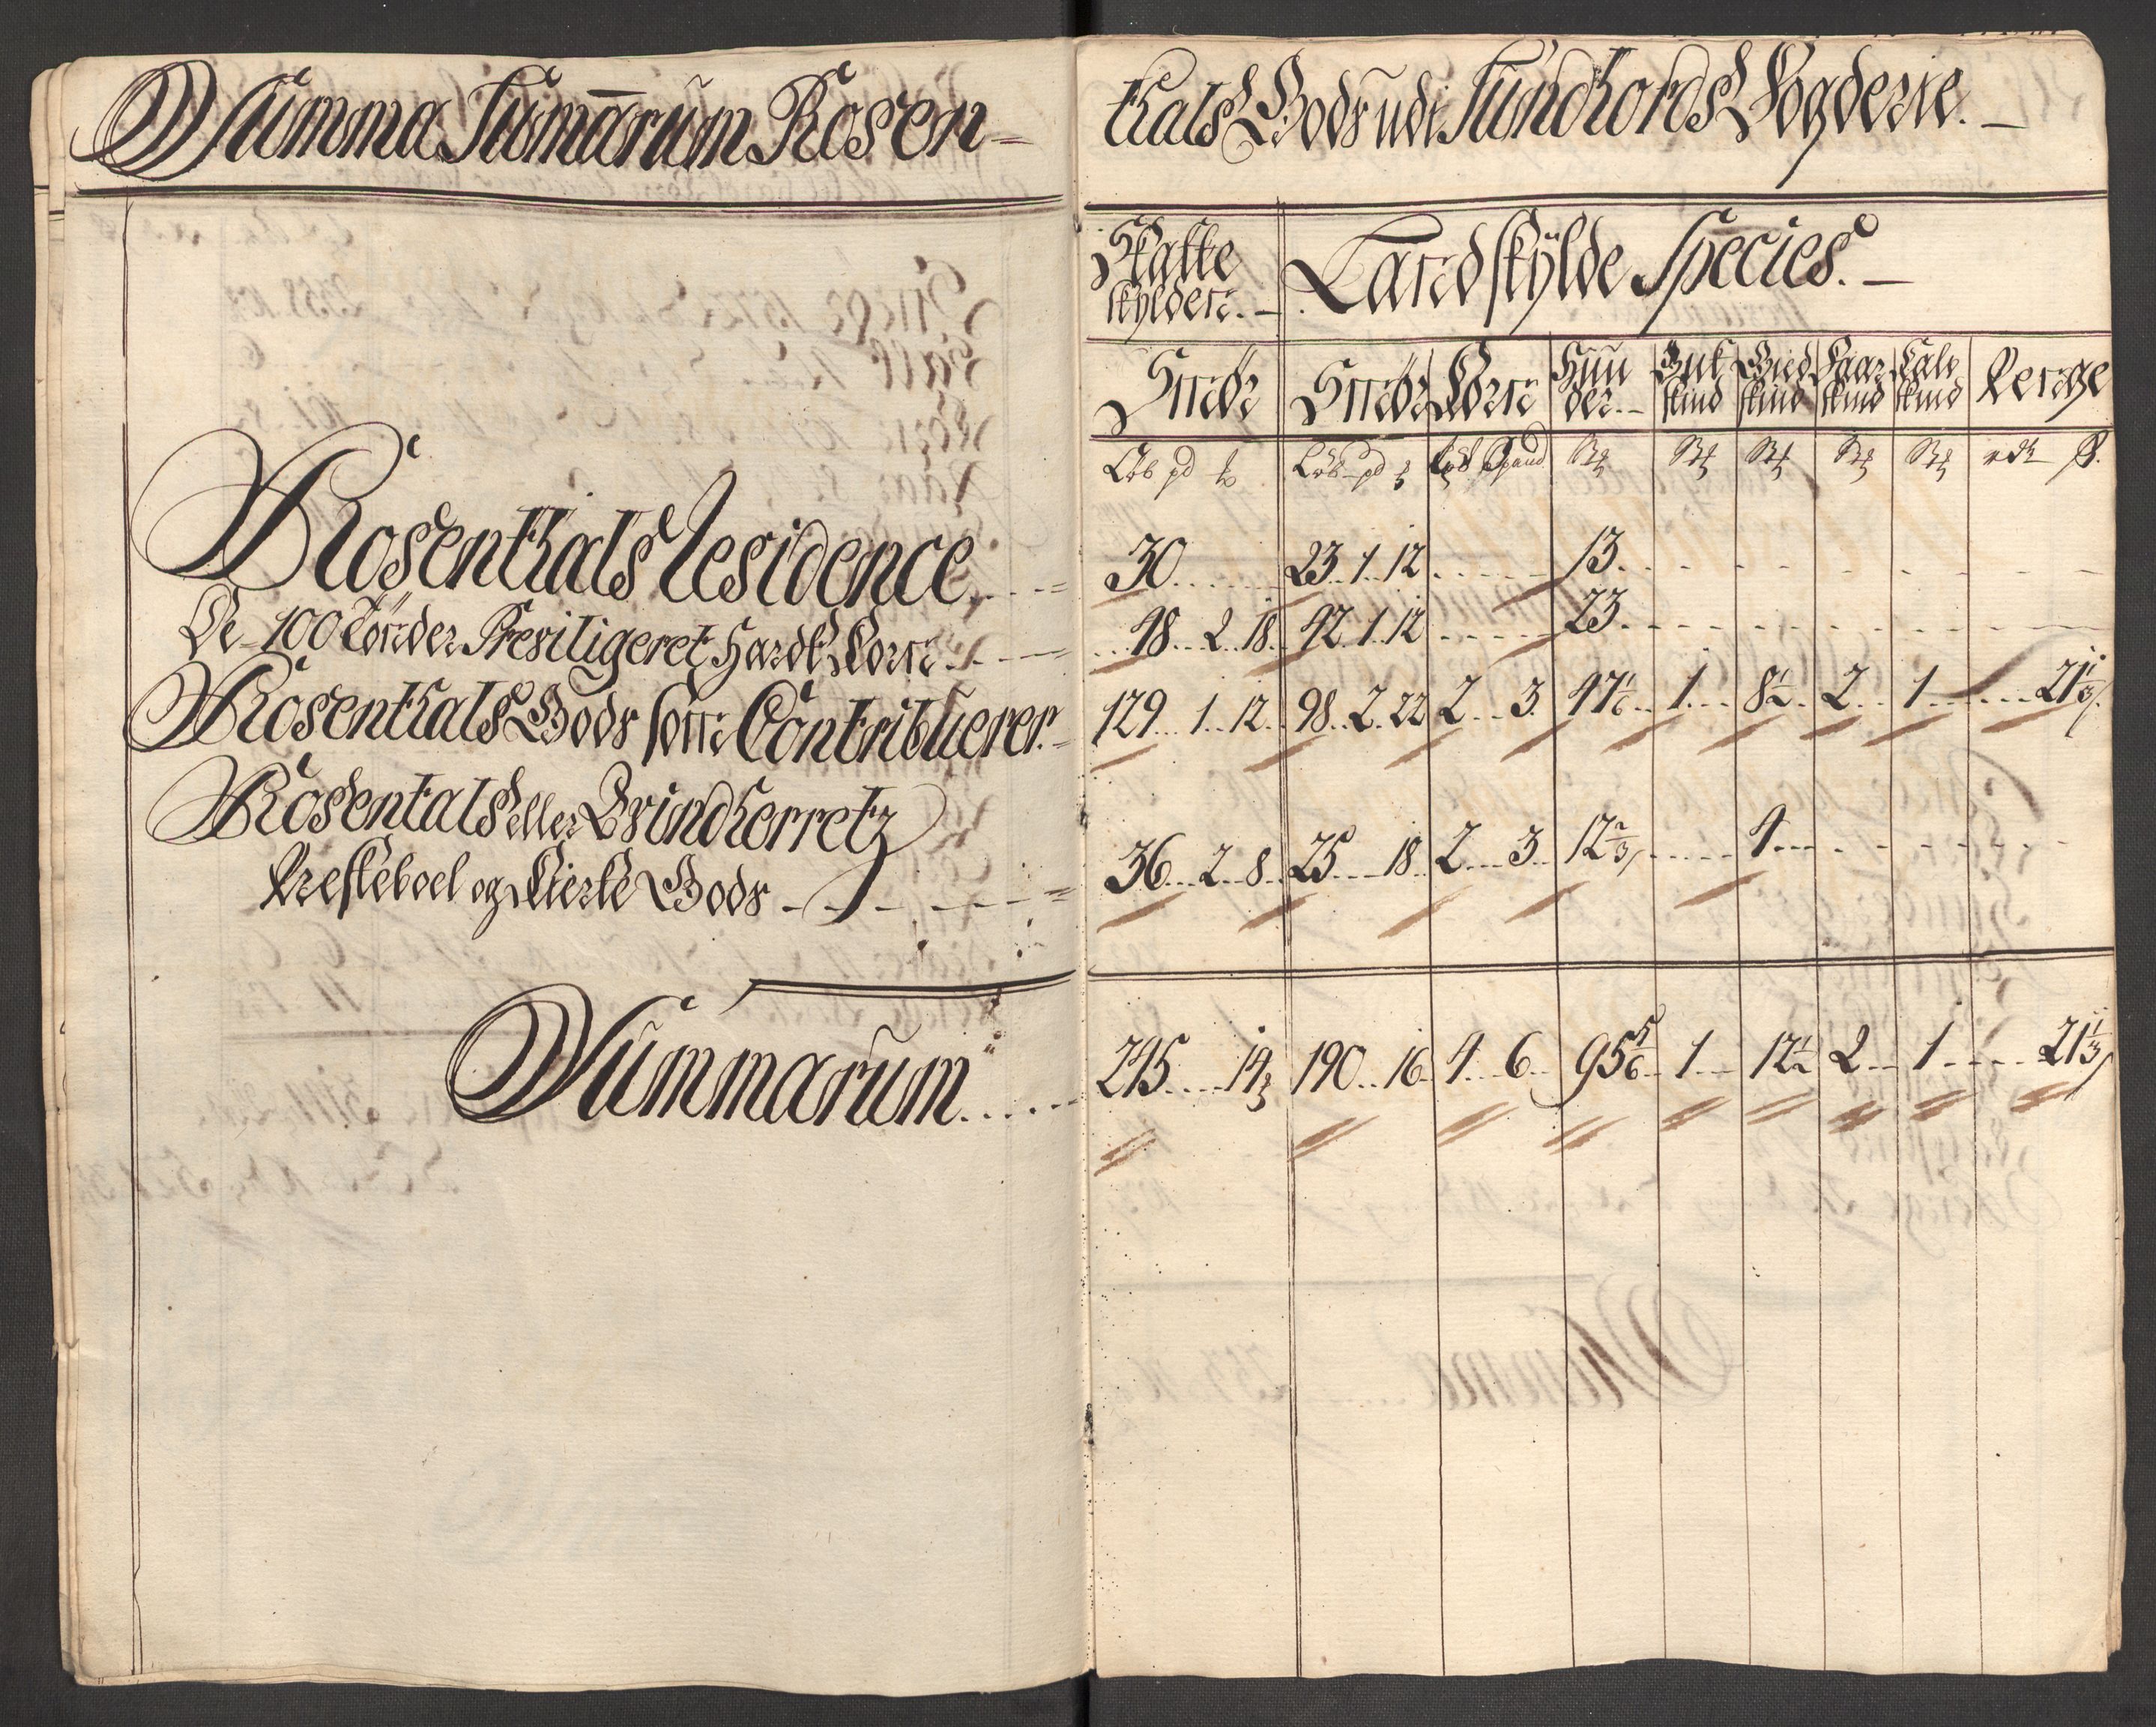 Summa Summarum Rosen-
thals Gods udi Sundhords Fogderie.
Skatte
skylden. Landskylde Species.
Smör Smör Korn Huu
der. Buk
skind Gied
skind Faar
skind Kalv
skind Penge
Löb pd ƀ Löb pd ƀ Löb Spand St St St St St rdr ß.
Rosenthals Residence 30 23 1 12 13
De 100 Tönder Previligeret Hardt Korn 48 2 18 42 1 12 23
Rosenthals Gods som Contribuerer 129 1 12 98 2 22 2 3 47 1/6 1 8½ 2 1 21⅓
Rosentals eller Qvindherretz
Presteboel og Kirke Gods 36 2 8 25 18 2 3 12⅔ 4
Summarum 245 14 190 16 4 6 95⅚ 1 12½ 2 1 21⅓